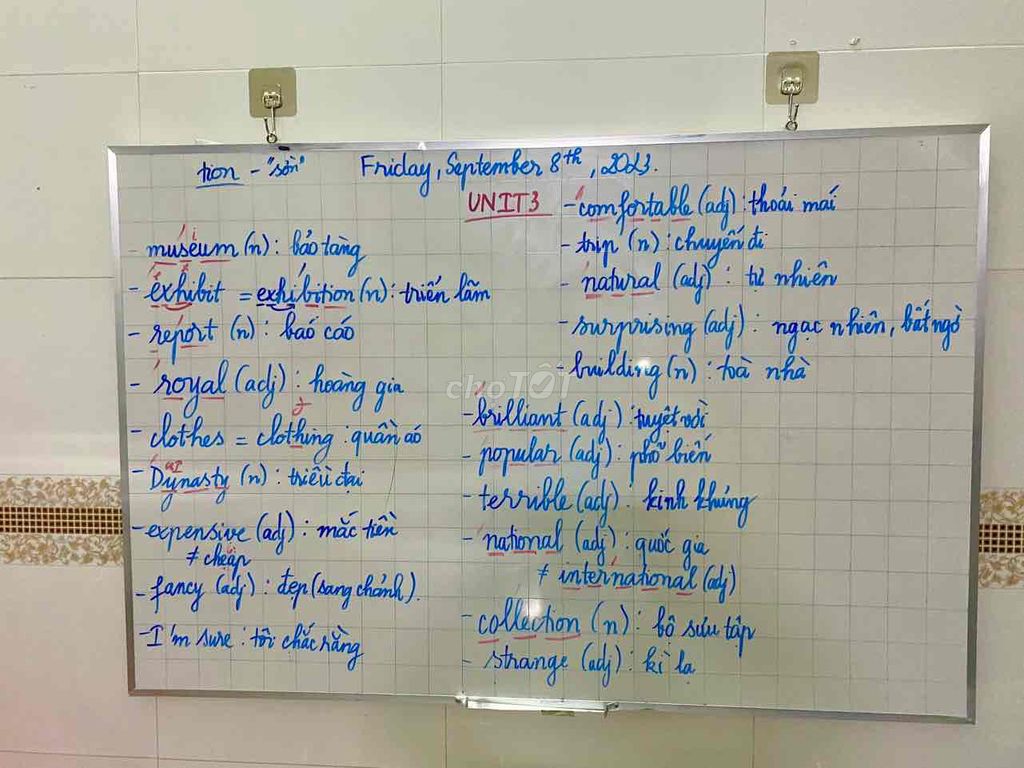 tion - "sần" Friday, September 8th, 2023.
UNIT 3
- museum (n) : bảo tàng
- exhibit = exhibition (n) : triển lãm
- report (n) : báo cáo
- royal (adj) : hoàng gia
- clothes = clothing : quần áo
- Dynasty (n) : triều đại
- expensive (adj) : mắc tiền
≠ cheap
- fancy (adj) : đẹp (sang chảnh).
- I'm sure : tôi chắc rằng
- comfortable (adj) : thoải mái
- trip (n) : chuyến đi
- natural (adj) : tự nhiên
- surprising (adj) : ngạc nhiên, bất ngờ
- building (n) : toà nhà
- brilliant (adj) : tuyệt vời
- popular (adj) : phổ biến
- terrible (adj) : kinh khủng
- national (adj) : quốc gia
≠ international (adj)
- collection (n) : bộ sưu tập
- strange (adj) : kì lạ
choTỐT